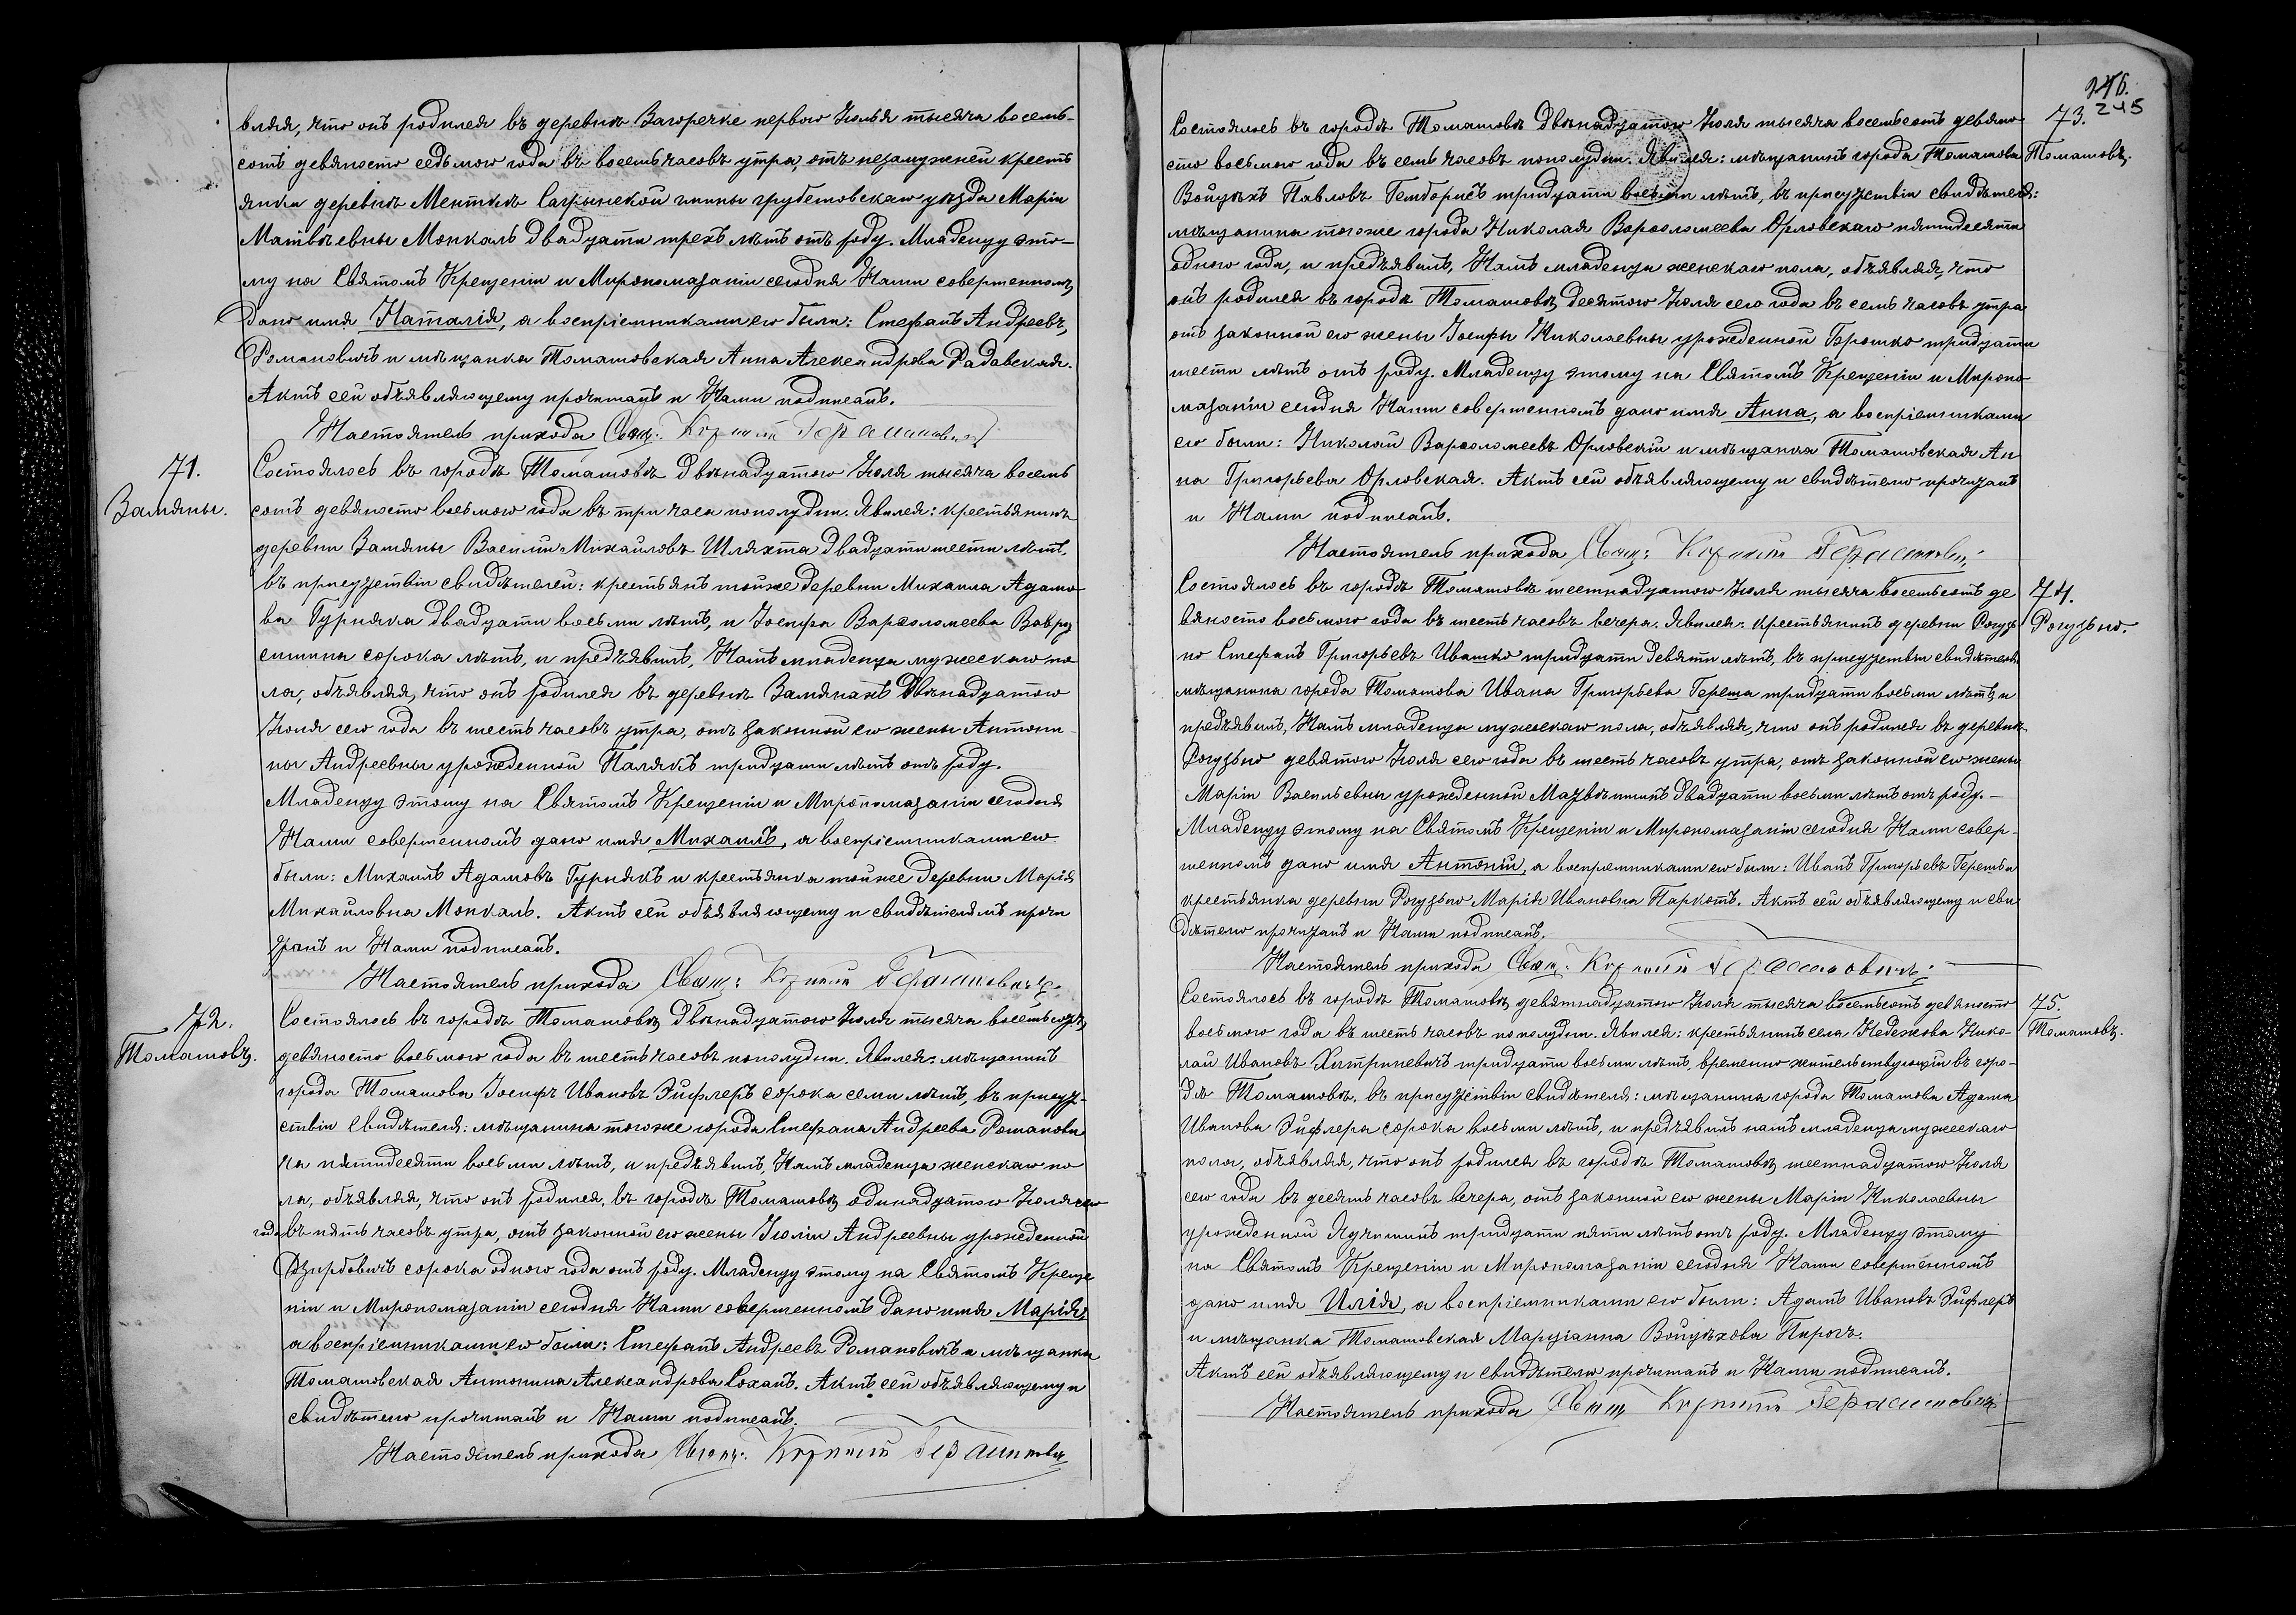 вляя, что онъ родился въ деревнѣ Загоречке перваго Іюлья тысяча восемь-
сотъ девяносто седьмого года въ восемь часовъ утра, отъ незамужней кресть
янки деревнѣ Ментыкъ Сагрынской гмины грубешовскаго уѣзда Маріи
Матвѣевны Монкаль двадцати трехъ лѣтъ отъ роду. Младенцу это-
му на Святомъ Крещеніи и Миропомазаніи сегодня Нами совершенномъ,
дано имя Наталія, а воспріемниками его были: Стефанъ Андреевъ,
Романовичъ и мѣщанка Томашовская Анна Александрова Радавская.
Актъ сей объявляющему прочитанъ и Нами подписанъ.
Настоятель прихода Свящ: Корнилій Герасимовичъ
71.
Замяны.
Состоялось въ городѣ Томашовѣ двѣнадцатого Іюля тысяча восемь
сотъ девяносто восьмого года въ три часа пополудни. Явился: крестьянинъ
деревни Замяны Василій Михайловъ Шляхта двадцати шести лѣтъ,
въ присудствіи свидѣтелей: крестьянъ тойже деревни Михаила Адамо
ва Гурняка двадцати восьми лѣтъ, и Іосифа Варѳоломеева Вавры
сишина сорока лѣтъ, и предъявилъ, Намъ младенца мужескаго по
ла, объявляя, что онъ родился въ деревнѣ Замянахъ двѣнадцатого
Іюля сего года въ шесть часовъ утра, отъ законной его жены Антони-
ны Андреевны урожденной Палякъ тридцати лѣтъ отъ роду.
Младенцу этому на Святомъ Крещеніи и Миропомазаніи сегодня
Нами совершенномъ дано имя Михаилъ, а воспріемниками его
были: Михаилъ Адамовъ Гурнякъ и крестьянка тойже деревни Марія
Михайловна Монкаль. Актъ сей объявляющему и свидѣтелямъ прочи
танъ и Нами подписанъ.
Настоятель прихода Свящ: Корнилій Герасимовичъ.
72.
Томашовъ.
Состоялось въ городѣ Томашовѣ, двѣнадцатого Іюля тысяча восемьсотъ
девяносто восьмого года въ шесть часовъ пополудни. Явился: мѣщанинъ
города Томашова Іосифъ Ивановъ Зифлеръ сорока семи лѣтъ, въ присуд-
ствіи свидѣтеля: мѣщанина тогоже города Стефана Андреева Романови
ча пятидесяти восьми лѣтъ, и предъявилъ, Намъ младенца женскаго по
ла, объявляя, что онъ родился, въ городѣ Томашовѣ, одинадцатого Іюля сего
года въ пять часовъ утра, отъ законной его жены Іюліи Андреевны урожденной
Дзирбовичъ сорока одного года отъ роду. Младенцу этому на Святомъ Креще
ніи и Миропомазаніи сегодня Нами совершенномъ дано имя Марія,
а воспріемниками его были: Стефанъ Андреевъ Романовичъ и мѣщанка
Томашовская Антонина Александрова Соханъ. Актъ сей объявляющему и
свидѣтелю прочитанъ и Нами подписанъ.
Настоятель прихода Свящ: Корнилій Герасимовичъ
246.
245
73.
Томашовъ.
Состоялось въ городѣ Томашовѣ двѣнадцатого Іюля тысяча восемьсотъ девяно
сто восьмого года въ семь часовъ пополудни. Явился: мѣщанинъ города Томашова
Войцѣхъ Павловъ Гемборисъ тридцати восьми лѣтъ, въ присудствіи свидѣтеля:
мѣщанина тогоже города Николая Варѳоломеева Орловскаго пятидесяти
одного года, и предъявилъ, Намъ младенца женскаго пола, объявляя, что
онъ родился въ городѣ Томашовѣ, десятого Іюля сего года въ семь часовъ утра
отъ законной его жены Іосифы Николаевны урожденной Брошко тридцати
шести лѣтъ отъ роду. Младенцу этому на Святомъ Крещеніи и Миропо
мазаніи сегодня Нами совершенномъ дано имя Анна, а воспріемниками
его были: Николай Варѳоломеевъ Орловскій и мѣщанка Томашовская Ан
на Григорьева Орловская. Актъ сей объявляющему и свидѣтелю прочитанъ
и Нами подписанъ.
Настоятель прихода Свящ: Корнилій Герасимовичъ
74.
Рогузьно.
Состоялось въ городѣ Томашовѣ шестнадцатого Іюля тысяча восемьсотъ де
вяносто восьмого года въ шесть часовъ вечера. Явился: крестьянинъ деревни Рогузь
но Стефанъ Григорьевъ Ивашко тридцати девяти лѣтъ, въ присудствіи свидѣтеля
мѣщанина города Томашова Ивана Григорьева Гереша тридцати восьми лѣтъ, и
предъявилъ, Намъ младенца мужескаго пола, объявляя, что онъ родился въ деревнѣ
Рогузьно девятого Іюля сего года въ шесть часовъ утра, отъ законной его жены
Маріи Васильевны урожденной Мазвѣшинъ двадцати восьми лѣтъ отъ роду.-
Младенцу этому на Святомъ Крещеніи и Миропомазаніи сегодня Нами совер-
шенномъ дано имя Антоній, а воспріемниками его были: Иванъ Григорьевъ Герешъ и
крестьянка деревни Рогузьно Марія Ивановна Паркотъ. Актъ сей объявляющему и сви
дѣтелю прочитанъ и Нами подписанъ.
Настоятель прихода Свящ: Корнилій Герасимовичъ.
75.
Томашовъ.
Состоялось въ городѣ Томашовѣ, девятнадцатого Іюля тысяча восемьсотъ девяносто
восьмого года въ шесть часовъ пополудни. Явился: крестьянинъ села Недежова Нико-
лай Ивановъ Хитриневичъ тридцати восьми лѣтъ, временно жительствующій въ горо-
дѣ Томашовѣ, въ присудствіи свидѣтеля: мѣщанина города Томашова Адама
Иванова Зифлера сорока восьми лѣтъ, и предъявилъ намъ младенца мужескаго
пола, объявляя, что онъ родился въ городѣ Томашовѣ, шестнадцатого Іюля
сего года въ десять часовъ вечера, отъ законной его жены Маріи Николаевны
урожденной Лучишинъ тридцати пяти лѣтъ отъ роду. Младенцу этому
на Святомъ Крещеніи и Миропомазаніи сегодня Нами совершенномъ
дано имя Илія, а воспріемниками его были: Адамъ Ивановъ Зифлеръ
и мѣщанка Томашовская Марціанна Войцѣхова Пирогъ.
Актъ сей объявляющему и свидѣтелю прочитанъ и Нами подписанъ.
Настоятель прихода Свящ Корнилій Герасимовичъ